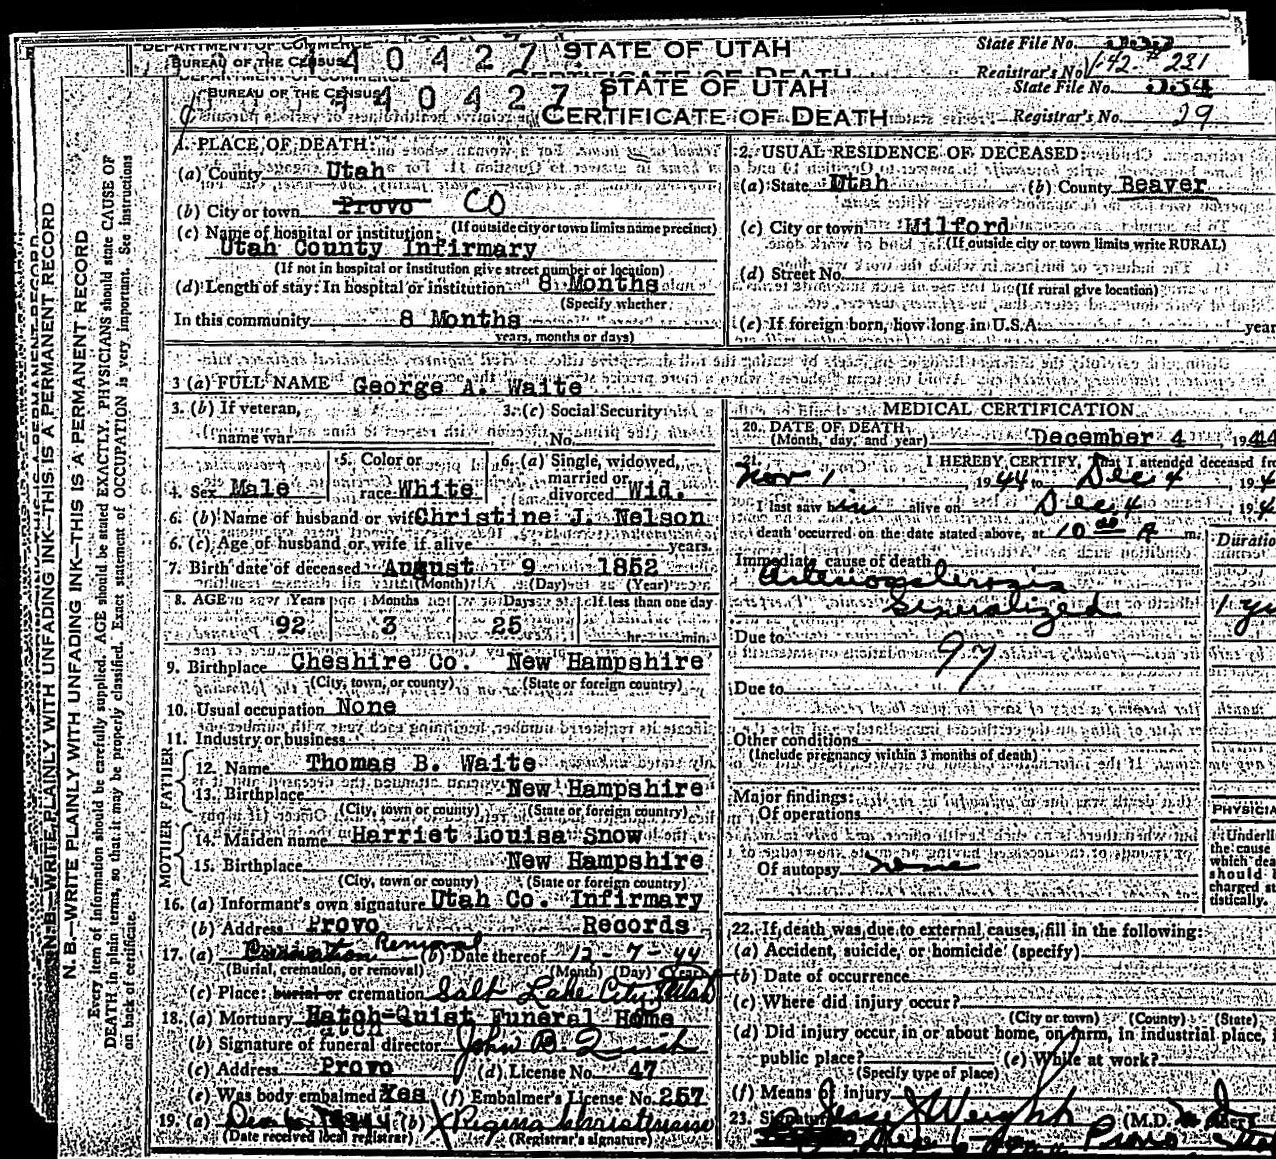 DEPARTMENT OF COMMERCE
BUREAU OF THE CENSUS 40427 STATE OF UTAH State File No.
CERTIFICATE OF DEATH Registrar's No. V-42 # 231
BUREAU OF THE CENSUS 40427 STATE OF UTAH State File No.
CERTIFICATE OF DEATH Registrar's No. 29
N.B.—WRITE PLAINLY WITH UNFADING INK—THIS IS A PERMANENT RECORD
N.B.—WRITE PLAINLY WITH UNFADING INK—THIS IS A PERMANENT RECORD
Every item of information should be carefully supplied. AGE should be stated EXACTLY. PHYSICIANS should state CAUSE OF
DEATH in plain terms, so that it may be properly classified. Exact statement of OCCUPATION is very important. See instructions
on back of certificate.
1. PLACE OF DEATH:
(a) County Utah
(b) City or town Provo CO
(If outside city or town limits name precinct)
(c) Name of hospital or institution:
Utah County Infirmary
(If not in hospital or institution give street number or location)
(d) Length of stay: In hospital or institution 8 Months
(Specify whether
In this community 8 Months
years, months or days)
2. USUAL RESIDENCE OF DECEASED:
(a) State Utah (b) County Beaver
(c) City or town Milford
(If outside city or town limits write RURAL)
(d) Street No.
(If rural give location)
(e) If foreign born, how long in U.S.A. year
3 (a) FULL NAME George A. Waite
3. (b) If veteran, 3. (c) Social Security
name war No.
4. Sex Male 5. Color or race White 6. (a) Single, widowed, married or divorced Wid.
6. (b) Name of husband or wife Christine J. Nelson
6. (c) Age of husband or wife if alive years.
7. Birth date of deceased August 9 1852
(Month) (Day) (Year)
8. AGE Years Months Days If less than one day
92 3 25 hr. min.
9. Birthplace Cheshire Co. New Hampshire
(City, town, or county) (State or foreign country)
10. Usual occupation None
11. Industry or business
FATHER
12. Name Thomas B. Waite
13. Birthplace New Hampshire
(City, town or county) (State or foreign country)
MOTHER
14. Maiden name Harriet Louisa Snow
15. Birthplace New Hampshire
(City, town or county) (State or foreign country)
16. (a) Informant's own signature Utah Co. Infirmary
(b) Address Provo Records
17. (a) Cremation Removal (b) Date thereof 12-7-44
(Burial, cremation, or removal) (Month) (Day) (Year)
(c) Place: burial or cremation Salt Lake City, Utah
18. (a) Mortuary Hatch-Quist Funeral Home
(b) Signature of funeral director John B. Quist
(c) Address Provo (d) License No. 47
(e) Was body embalmed Yes (f) Embalmer's License No. 257
19. (a) Dec 6 1944 (b) Regina Christensen
(Date received local registrar) (Registrar's signature)
MEDICAL CERTIFICATION
20. DATE OF DEATH
(Month, day, and year) December 4, 1944
21. I HEREBY CERTIFY, That I attended deceased fr
Nov 1 1944 to Dec 4 194
I last saw him alive on Dec 4 194
death occurred on the date stated above, at 10 00 A m.
Duratio
Immediate cause of death
Arteriosclerosis
Generalized 1 y
Due to 97
Due to
Other conditions
(Include pregnancy within 3 months of death)
Major findings:
Of operations
Of autopsy none
PHYSICIA
Underli
the cause
which dea
should
charged st
tistically.
22. If death was due to external causes, fill in the following:
(a) Accident, suicide, or homicide (specify)
(b) Date of occurrence
(c) Where did injury occur?
(City or town) (County) (State)
(d) Did injury occur in or about home, on farm, in industrial place,
public place? (e) While at work?
(Specify type of place)
(f) Means of injury
23. Signature Jesse J Weight (M.D.
Provo